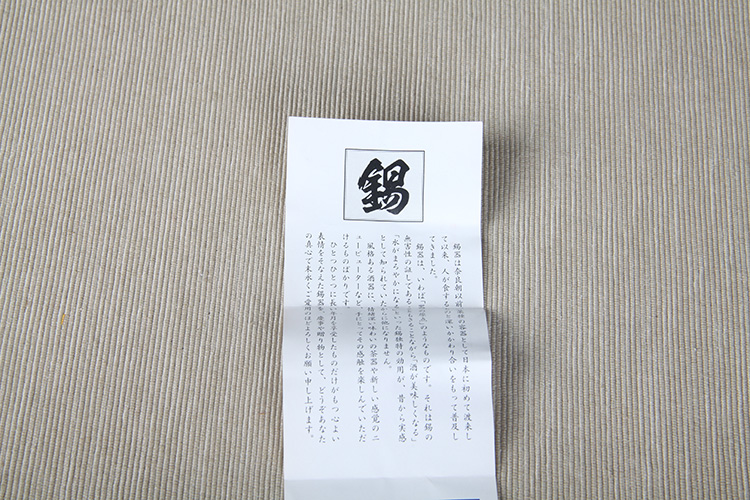 錫
錫器は奈良朝以前 の容器として日本に初めて渡来し
て以来、人が食する かかわり合いをもって普及し
てきました。
錫器は、いわば のようなものです。それは錫の
無害性の証しであることもさることながら、「酒が美味しくなる」
「水がまろやかになる」といった錫独特の効用が、昔から実感
として知られていたからに他になりません。
風格ある酒器に、 味わいの茶器や新しい感覚のニ
ューピューターなど、手にとってその感触を楽しんでいただ
けるものばかりです。
ひとつひとつに長い年月を享受したものだけがもつ心よい
表情をそなえた錫器を、 や贈り物として、どうぞあなた
の真心で末永くご愛用のほどよろしくお願い申し上げます。